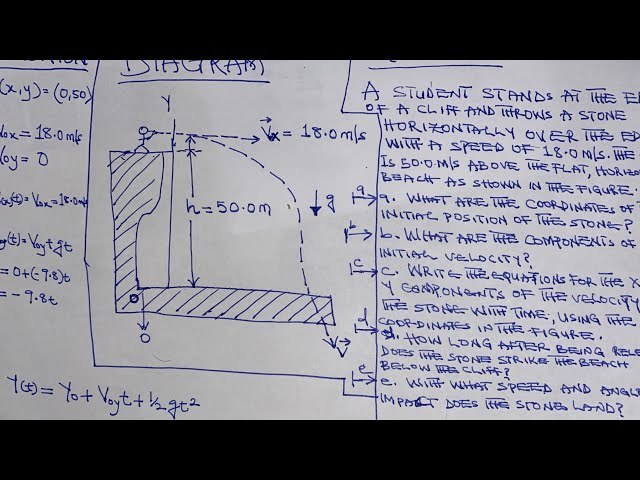 (x,y) = (0,50)
V₀x = 18.0m/s
V₀y = 0
(t) = V₀x = 18.0m
(t) = V₀y + gt
= 0 + (-9.8)t
= -9.8t
Y(t) = Y₀ + V₀yt + ½gt²
DIAGRAM
Y
V⃗x = 18.0m/s
h = 50.0m
g⃗
O
O
V⃗
A STUDENT STANDS AT THE
OF A CLIFF AND THROWS A STONE
HORIZONTALLY OVER THE
WITH A SPEED OF 18.0m/s. THE
IS 50.0m/s ABOVE THE FLAT,
BEACH AS SHOWN IN THE FIGURE.
a
a. WHAT ARE THE COORDINATES OF
INITIAL POSITION OF THE STONE?
b
b. WHAT ARE THE COMPONENTS OF
INITIAL VELOCITY?
c
c. WRITE THE EQUATIONS FOR THE X
Y COMPONENTS OF THE VELOCITY
THE STONE WITH TIME, USING THE
COORDINATES IN THE FIGURE.
d
d. HOW LONG AFTER BEING
DOES THE STONE STRIKE THE BEACH
BELOW THE CLIFF?
e
e. WITH WHAT SPEED AND ANGLE
IMPACT DOES THE STONE LAND?